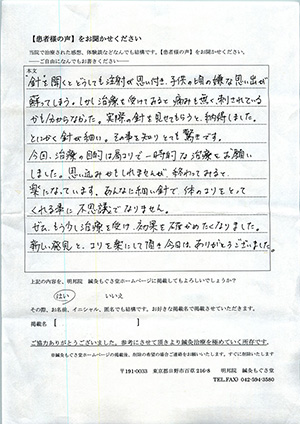 【患者様の声】をお聞かせください
当院で治療された感想、体験談などなんでも結構です。【患者様の声】をお聞かせください。
――ご自由になんでもお書きください――
本文
"針"を聞くとどうしても注射が思い付き、子供の頃の嫌な思い出が
蘇ってしまう。しかし治療を受けてみると痛みも無く、刺されている
かも分からなかった。実際の針を見せてもらうと、納得しました。
とにかく針が細い。その事を知りとても驚きです。
今回、治療の目的は肩こりで一時的な治療をお願い
しました。思い込みかもしれませんが、終わってみると、
楽になっています。あんなに細い針で、体のコリをとって
くれる事に不思議でなりません。
ぜひ、もう少し治療を受け、効果を確かめたくなりました。
新しい発見と、コリを楽にして頂き今日は、ありがとうございました。
上記の内容を、明邦院 鍼灸もぐさ堂ホームページに掲載してもよろしいでしょうか?
はい いいえ
その際、お名前、イニシャル、匿名でも結構です。お好きな掲載名で掲載させていただきます。
掲載名【 】
ご協力ありがとうございました。参考にさせて頂きより鍼灸治療を極めていく所存です。
※鍼灸もぐさ堂ホームページの掲載後、削除の希望の場合ご連絡をお願いいたします。すぐに削除いたします
〒191-0033 東京都日野市百草216-8 明邦院 鍼灸もぐさ堂
TEL.FAX) 042-594-3580